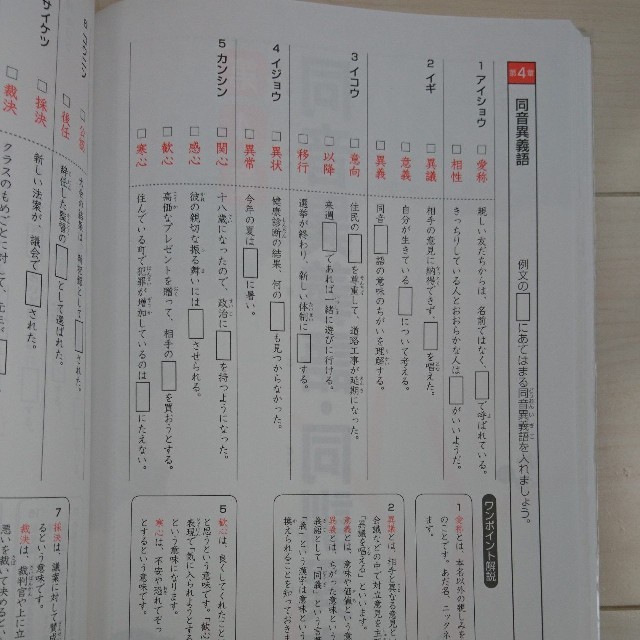 第4章
同音異義語
例文の□にあてはまる同音異義語を入れましょう。
ワンポイント解説
1 アイショウ
□ 愛称 親しい友だちからは、名前ではなく、□で呼ばれている。
□ 相性 きっちりしている人とおおらかな人は□がいいようだ。
2 イギ
□ 異議 相手の意見に納得できず、□を唱えた。
□ 意義 自分が生きている□について考える。
□ 異義 同音□語の意味のちがいを理解する。
3 イコウ
□ 意向 住民の□を尊重して、道路工事が延期になった。
□ 以降 来週□であれば一緒に遊びに行ける。
□ 移行 選挙が終わり、新しい体制に□する。
4 イジョウ
□ 異状 健康診断の結果、何の□も見つからなかった。
□ 異常 今年の夏は□に暑い。
5 カンシン
□ 関心 十八歳になったので、政治に□を持つようになった。
□ 感心 彼の親切な振る舞いには□させられる。
□ 歓心 高価なプレゼントを贈って、相手の□を買おうとする。
□ 寒心 住んでいる町で犯罪が増加しているのは□にたえない。
□ 後任 辞任した監督の□として選ばれた。
サイケツ
□ 採決 新しい法案が、議会で□された。
□ 裁決 クラスのもめごとに対して、
1
愛称とは、本名以外の親しみを
のことです。あだ名、ニックネ
ます。
2
異議とは、相手と異なる意見と
会議などの中で対立意見を主
「異議を唱える」といいます。
意義とは、意味や価値という意
異義とは、ちがった意味という
義語として「同義」という
「義」という漢字は意味という
換えられることを知っておき
5
歓心は、良くしてくれたこと
と思うという意味です。「歓心
表現で「気に入られようとする
という意味になります。
寒心は、不安や恐れでぞっ
とするという意味です。
7
採決は、議案に対して賛成
るという意味です。
裁決は、裁判官や上に立
悪いを裁いて決めると